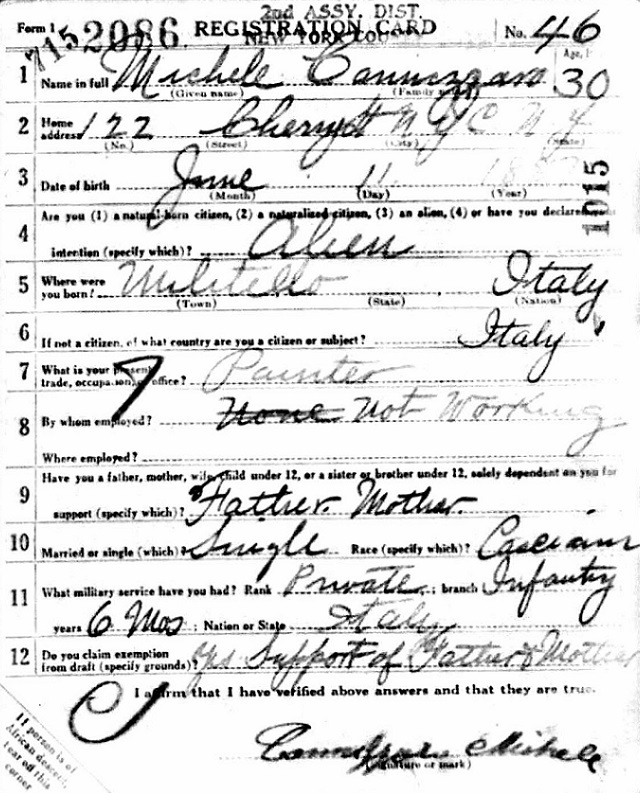 2nd ASSY. DIST.
Form 1 7152086 REGISTRATION CARD No. 46
NEW YORK
1 Name in full Michele Age, 30
(Given name) (Family name)
2 Home address 122 Cherry St N.Y.C N.Y
(No.) (Street) (City) (State)
3 Date of birth June 11
(Month) (Day) (Year)
1015
Are you (1) a natural-born citizen, (2) a naturalized citizen, (3) an alien, (4) or have you declared your
4 intention (specify which)? Alien
5 Where were you born? Militello Italy
(Town) (State) (Nation)
6 If not a citizen, of what country are you a citizen or subject? Italy
7 What is your present trade, occupation, or office? Painter
8 By whom employed? None Not Working
Where employed?
Have you a father, mother, wife, child under 12, or a sister or brother under 12, solely dependent on you for
9 support (specify which)? Father. Mother.
10 Married or single (which)? Single Race (specify which)?
11 What military service have you had? Rank Private; branch Infantry
years 6 Mos; Nation or State Italy
12 Do you claim exemption from draft (specify grounds)? Yes Support of Father & Mother
I affirm that I have verified above answers and that they are true.
Michele
(Signature or mark)
If person is of
African descent,
tear off this
corner